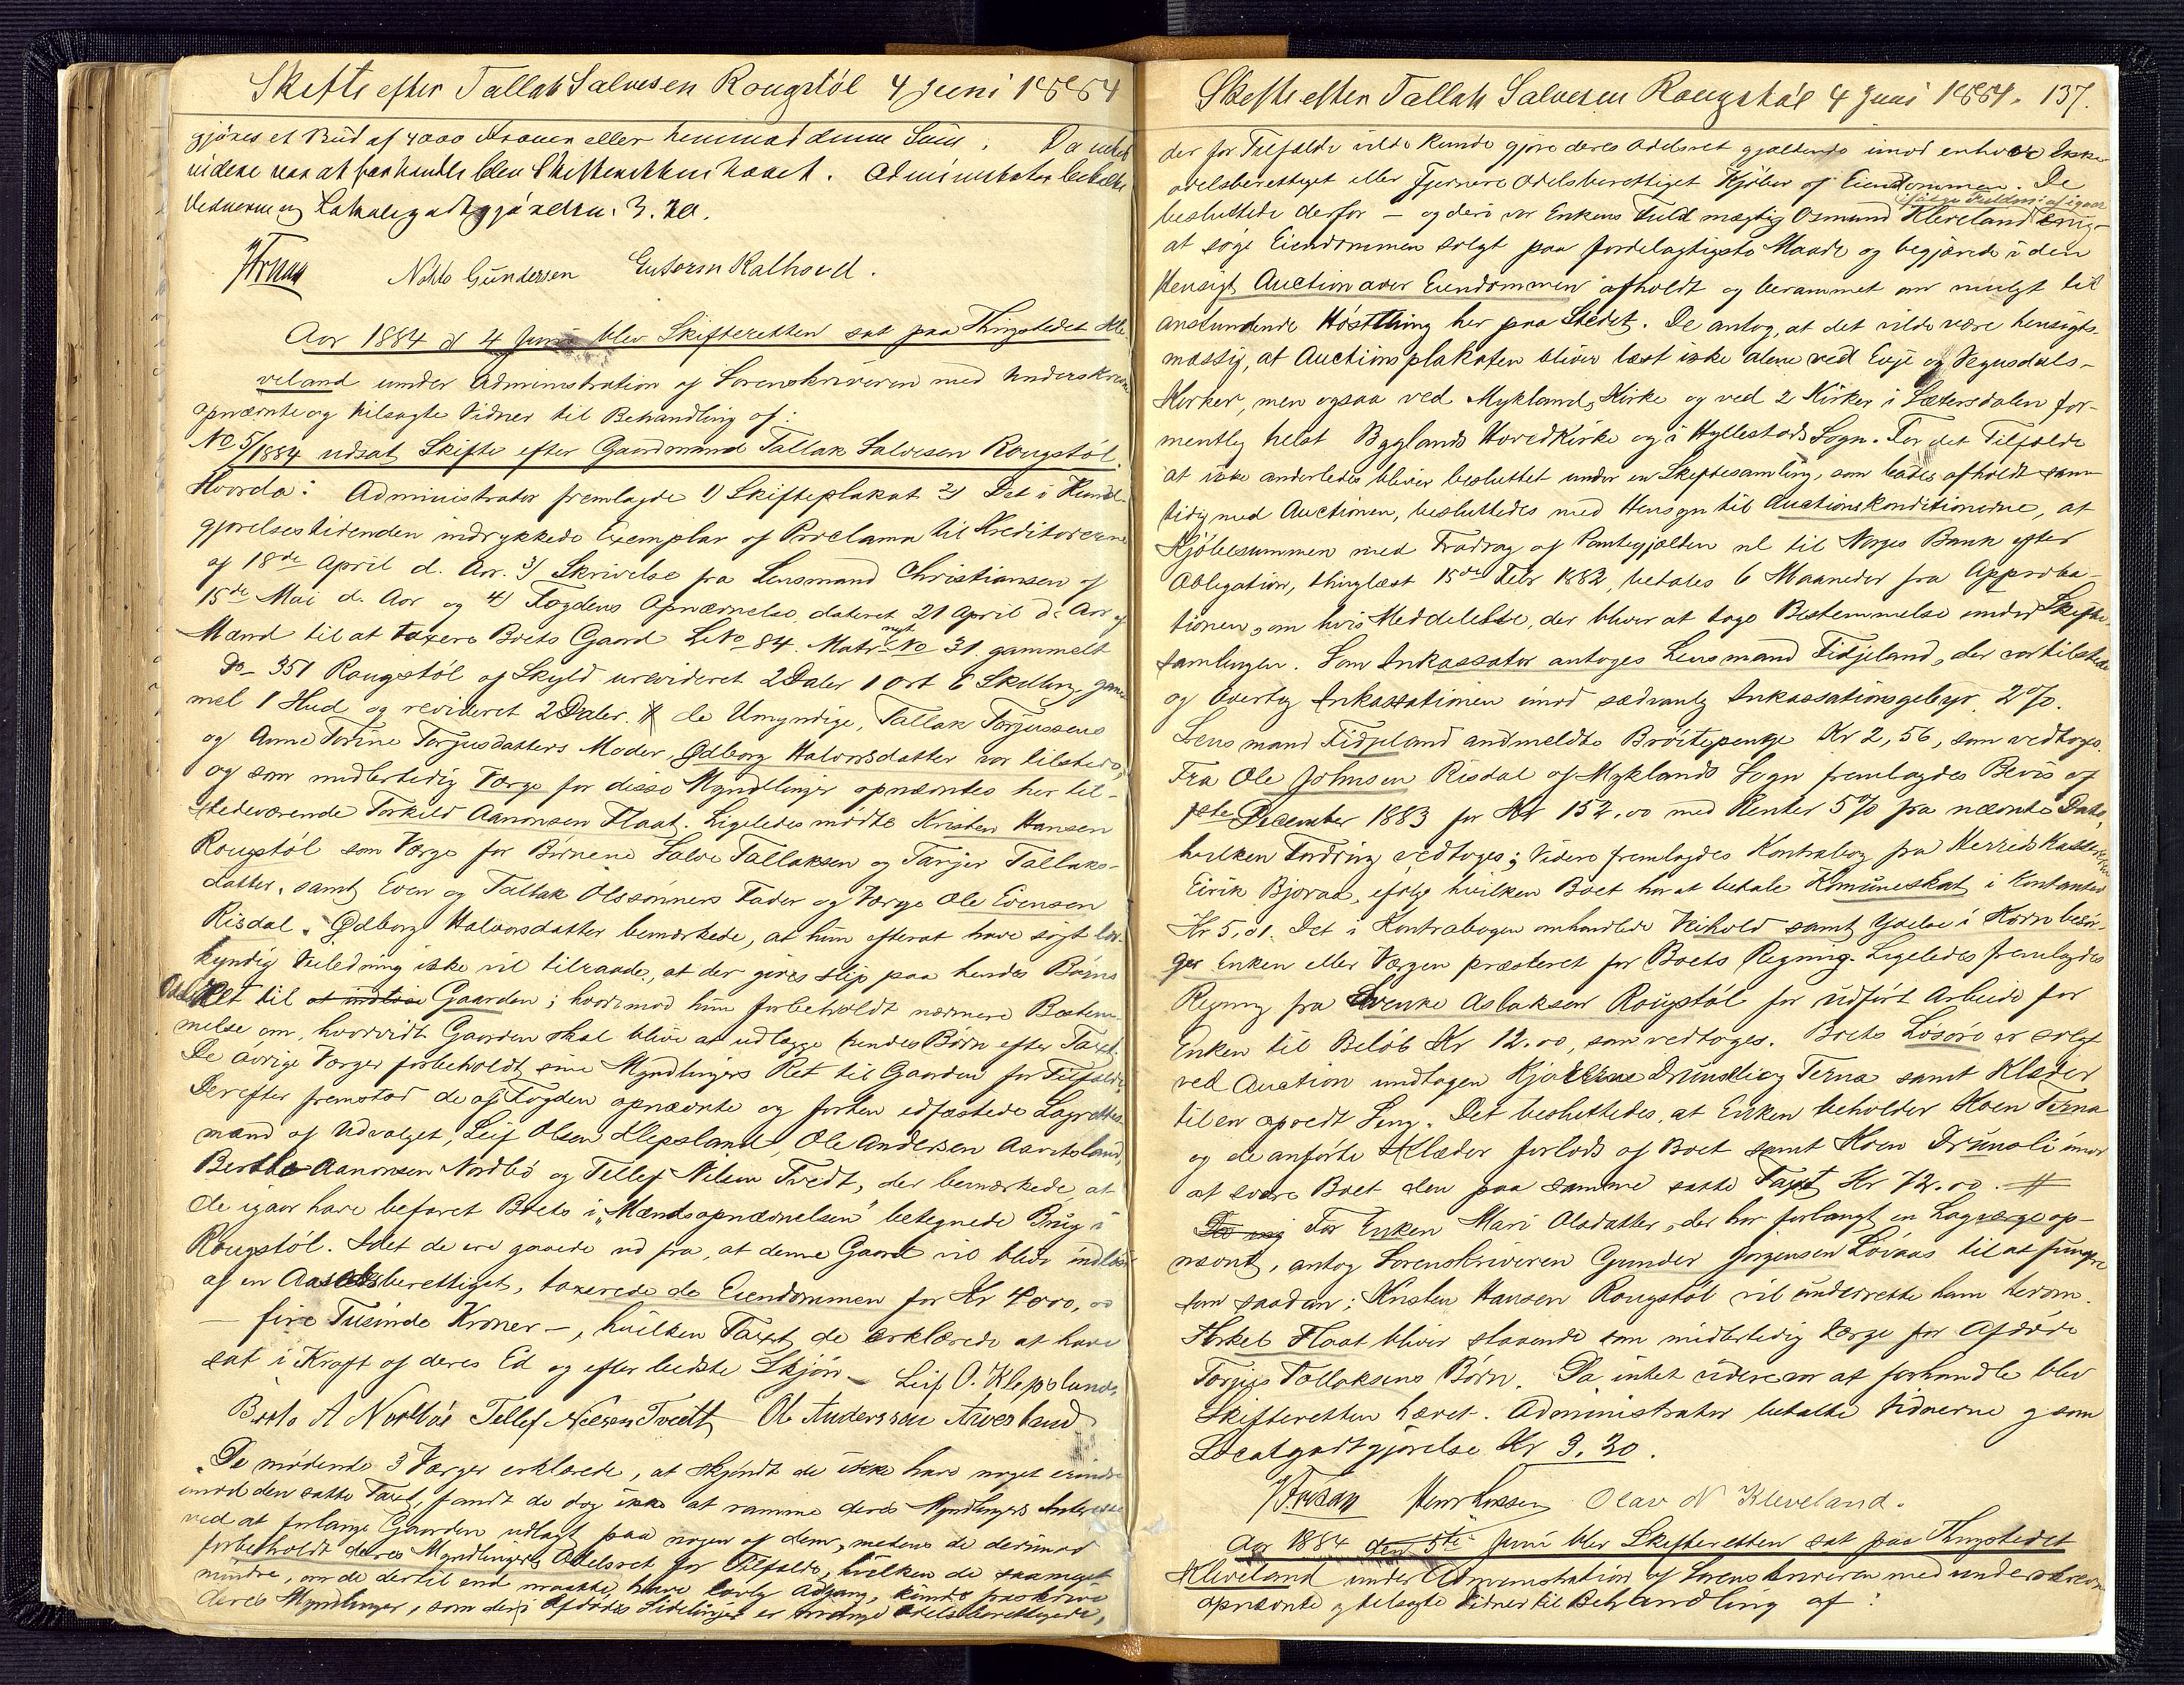 Skifte efter Tallak Salvesen Rougstöl 4 Juni 1884
gjöres et Bud af 4000 Kroner eller henimod denne Sum. Da intet
videre var at forhandle blev Skifteretten hævet. Administrator betalte
Vidnerne og Lokalegodtgjörelsen. 3. 20.
Nohle Gundersen Guttorm Kalhovd.
Aar 1884 d 4 Juni blev Skifteretten sat paa Thingstedet Kle-
veland under Administration af Sorenskriveren med Underskrevne
opnævnte og tilsagte Vidner til Behandling af:
No 5/1884 udsat Skifte efter Gaardmand Tallak Salvesen Rougstöl.
Hvorda: Administrator fremlagde 1) Skifteplakat 2) Det i Kund-
gjörelsestidenden indrykkede Exemplar af Proclama til Kreditorerne
af 18de April d. Aar. 3) Skrivelse fra Lensmand Christiansen af
15de Mai d. Aar og 4) Fogdens Opnævnelse, dateret 21 April d. Aar af
Mænd til at taxere Boets Gaard LNo 84. Matr. nyt No 31. gammelt
Do 351 Rougstöl af Skyld urevideret 2 Daler 1 Ort 6 Skilling, gam-
mel 1 Hud og revideret 2 Daler. de Umyndige, Tallak Torjussens
og Anne Torine Torjusdatters Moder, Ødborg Halvorsdatter var tilstede,
og som midlertidig Værge for disse Myndlinger opnævntes her til-
stedeværende Torkild Aanonsen Flaat. Ligeledes mödte Kristen Hansen
Rougstöl som Værge for Börnene Salve Tallaksen og Tarjer Tallaks-
datter, samt Even og Tallak Olssönners Fader og Værge Ole Evensen
Risdal. Ødborg Halvorsdatter bemærkede, at hun efterat have sögt lov-
kyndig Veiledning ikke vil tilraade, at der gives slip paa hendes Börns
Odels Ret til at indlöse Gaarden; hvorimod hun forbeholdt nærmere Bestem-
melse om, hvorvidt Gaarden skal blive at udlægge hendes Börn efter Taxt.
De övrige Værger forbeholdt sine Myndlingers Ret til Gaarden for Tilfælde.
Derefter fremstod de af Fogden opnævnte og forhen edfæstede Lagrettes-
mænd af Udvalget, Leif Olsen Klepsland, Ole Andersen Aavitsland,
Berthe Aanonsen Nordbö og Tellef Nilsen Tvedt, der bemærkede, at
de igaar have befaret Boets i "Mandsopnævnelsen" betegnede Brug i
Rougstöl. Idet de ere gaaede ud fra, at denne Gaard vil blive indlöst
af en Aasædesberettiget, taxerede de Eiendommen for Kr 4000,00
– fire Tusinde Kroner –, hvilken Taxt de erklærede at have
sat i Kraft af deres Ed og efter bedste Skjön – Leif O. Klepsland,
A Nordbö Tellef Nielsen Tvedt Ole Anderssen
De mödende 3 Værger erklærede, at skjöndt de ikke have noget erindre
imod den satte Taxt, fandt de dog ikke at ramme deres Myndlingers Interesse
ved at forlange Gaarden udlagt paa nogen af dem, medens de derimod
forbeholdt deres Myndlingers Odelsret for Tilfælde, hvilken de saameget
mindre, om de dertil end maatte have lovlig Adgang, kunde fraskrive
deres Myndlinger, som der i Afdödes Sidelinjer er mange Odelsberettigede,
Skifte efter Tallak Salvesen Rougstöl 4 Juni 1884. 137.
der for Tilfælde vilde kunde gjöre deres Odelsret gjældende imod enhver ikke
odelsberettiget eller Fjernere Odelsberettiget Kjöber af Eiendommen. De
besluttede derfor – og deri var Enkens Fuldmægtig Osmund Kleveland enig –
at söge Eiendommen solgt paa fordelagtigste Maade og begjærede i den
Hensigt Auction over Eiendommen afholdt og berammet om muligt til
anstundende Höstthing her paa Stedet. De antog, at det vilde være hensigts-
mæssig, at Auctionsplakaten bliver læst ikke alene ved Evje og Vegusdals-
Kirker, men ogsaa ved Myklands Kirke og ved 2 Kirker i Sætersdalen for-
mentlig helst Byglands Hovedkirke og i Hyllestads Sogn. For det Tilfælde
at ikke anderledes bliver besluttet under en Skiftesamling, som bades afholdt sam-
tidig med Auctionen, besluttedes med Hensyn til Auctionskonditionerne, at
Kjöbesummen med Fradrag af Pantegjælden nl til Norges Bank efter
Obligation, thinglæst 15de Febr 1882, betales 6 Maaneder fra Approba-
tionen, om hvis Meddelelse, der bliver at tage Bestemmelse under Skifte-
samlingen. Som Inkassator antoges Lensmand Fidjeland, der var tilstede
og overtog Inkassationen imod sædvanlig Inkassationsgebyr 2%.
Lensmand Fidjeland anmeldte Kr 2,56, som vedtoges.
Fra Ole Johnsen Risdal af Myklands Sogn fremlagdes Bevis af
1ste December 1883 for Kr 152.00 med Renter 5% fra nævnte Dato,
hvilken Fordring vedtoges; Videre fremlagdes Kontrabog fra Herredskasserer
Eirik Bjoraa, ifölge hvilken Boet har at betale Komuneskat i Kontanter
Kr 5,01. Det i Kontrabogen omhandlede Veihold samt Ydelse i Korn besör-
ger Enken eller Værgen præsteret for Boets Regning. Ligeledes fremlagdes
Regning fra Svenke Aslaksen Rougstöl for udfört Arbeide for
Enken til Belöb Kr 12.00, som vedtoges. Boets Lösöre er solgt
ved Auction undtagen Kjörerne Drunsli og Terna samt Klæder
til en opredt Seng. Det besluttedes, at Enken beholder Koen Terna
og de anförte Klæder forlods af Boet samt Koen Drunsli imod
at svare Boet den paa samme satte Taxt Kr 72.00.
For Enken Mari Olsdatter, der har forlangt en Lagværge op-
nævnt, antog Sorenskriveren Gunder Jörgensen Lövaas til at fungere
som saadan; Kristen Hansen Rougstöl vil underrette ham herom.
Torkel Flaat bliver staaende som midlertidig Værge for Afdöde
Torjus Tallaksens Börn. Da intet videre var at forhandle blev
Skifteretten hævet. Administrator betalte Vidnerne og som
Localgodtgjörelse Kr 3.20.
Olav N Kleveland.
Aar 1884 den 5te Juni blev Skifteretten sat paa Thingstedet
Kleveland under Administration af Sorenskriveren med underskrevne
opnævnte og tilsagte Vidner til Behandling af: